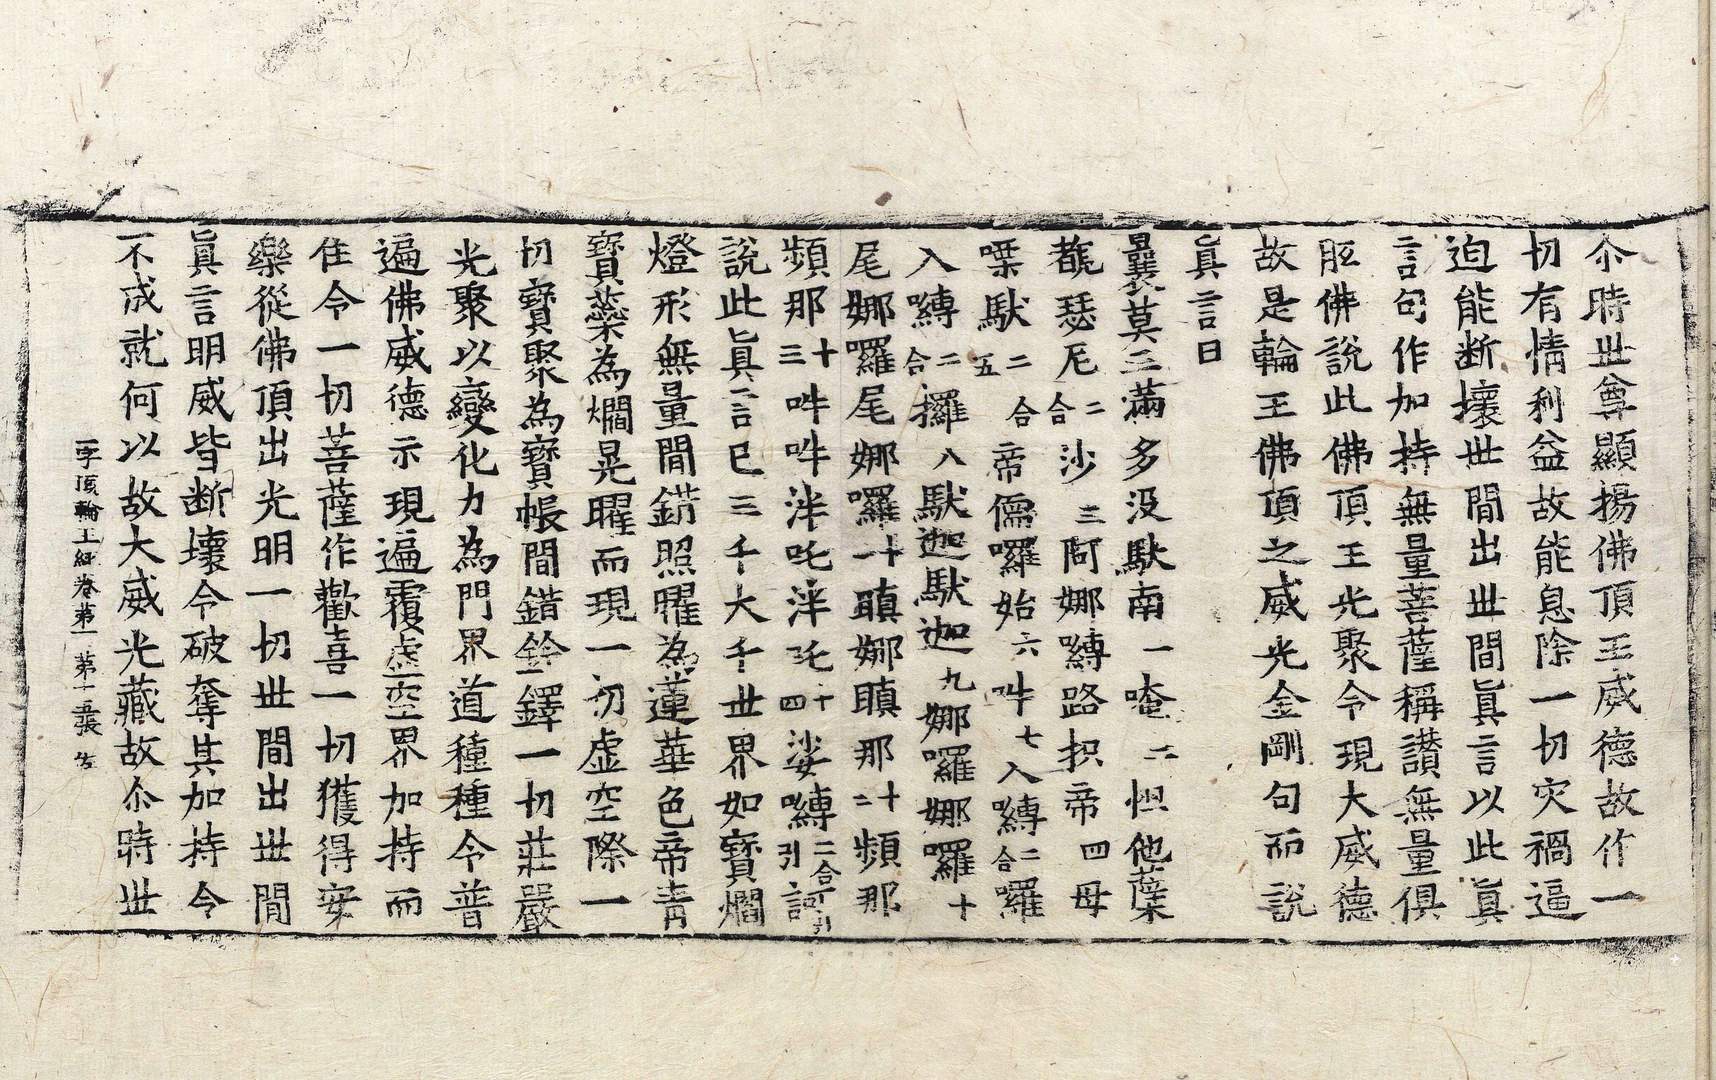 尒時世尊顯揚佛頂王威德故作一
切有情利益故能息除一切灾禍逼
迫能断壞世間出世間眞言以此眞
言句作加持無量菩薩稱讃無量俱
胝佛說此佛頂王光聚令現大威德
故是輪王佛頂之威光金剛句而說
眞言曰
曩莫三滿多没馱南一唵二怛他蘖
覩瑟尼二合沙三阿娜嚩路抧帝四母
㗚馱二合五帝儒囉始六吽七入嚩二合囉
入嚩二合攞八馱迦馱迦九娜囉娜囉十
尾娜囉尾娜囉十一瞋娜瞋那十二頻那
頻那十三吽吽泮吒泮吒十四娑嚩二合引訶引
說此眞言已三千大千世界如寶爓
燈形無量間錯照曜為蓮華色帝青
寶蘂為爓晃曜而現一切虚空際一
切寶聚為寶帳間錯鈴鐸一切莊嚴
光聚以變化力為門界道種種令普
遍佛威德示現遍覆虚空界加持而
住令一切菩薩作歡喜一切獲得安
樂從佛頂出光明一切世間出世間
眞言明威皆断壞令破奪其加持令
不成就何以故大威光藏故尒時世
一字頂輪王經卷第一 第十五張 左